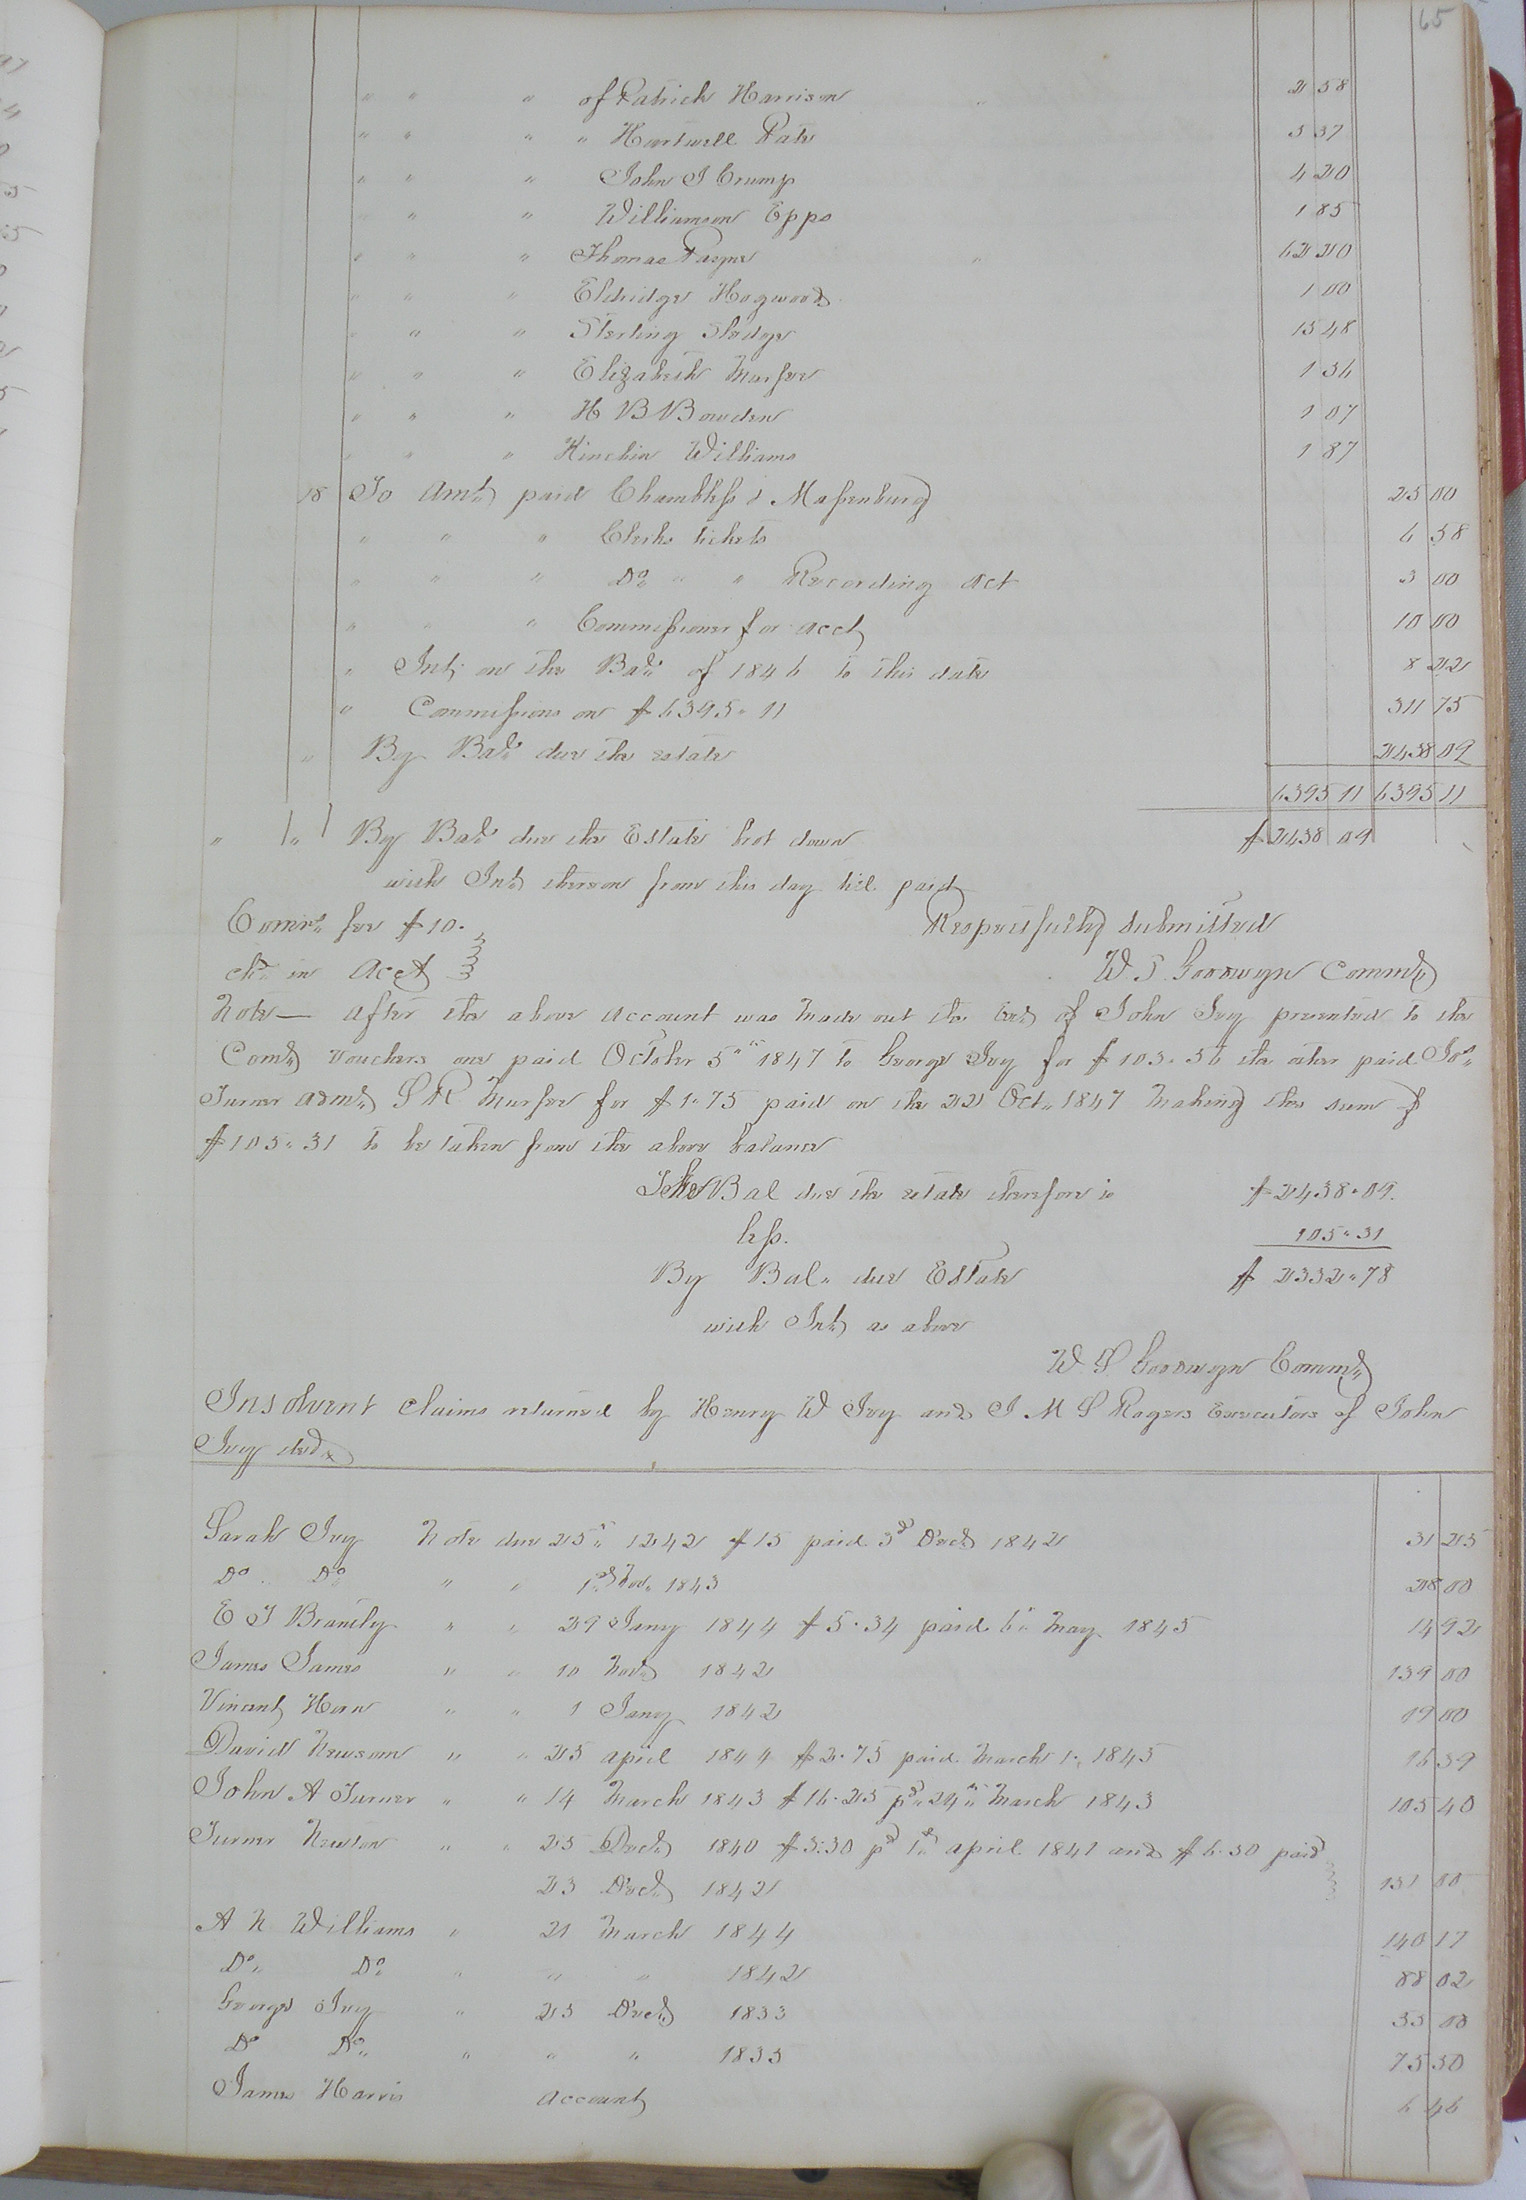 65
" " " of Patrick Harrison " 2 58
" " " " Hartwell Pate 5 37
" " " John J Crump 4 20
" " " Williamson Epps 1 85
" " " Thomas Payne " 62 20
" " " Eldridge Hogwood 1 00
" " " Sterling Sledge 15 48
" " " Elizabeth Murfee 1 36
" " " H B Bowden 1 07
" " " Kinchin Williams 1 87
18 To Amt paid Chambliss & Massenburg 25 00
" " " Clerks tickets 6 58
" " " Do " " Recording Act 3 00
" " " Commissioner for acct 10 00
" Int on the Bal of 1846 to this date 8 22
" Commissions on $6395.11 311 75
" By Bal due the estate 2438 09
6395 11 6395 11
" " By Bal due the Estate brot down $2438 09
with Int thereon from this day till paid
Comrs fee $10. Respectfully submitted
chd in Acct W. S. Goodwyn Commr
Note — After the above account was made out the Exr of John Ivy presented to the
Comr vouchers one paid October 5th 1847 to George Ivy for $103.56 the other paid Jos
Turner admr S R Murfee for $1.75 paid on the 22 Oct. 1847 Making the sum of
$105.31 to be taken from the above balance
The Bal due the estate therefore is $2438.09.
less. 105.31
By Bal. due Estate $2332.78
with Int as above
W. S. Goodwyn Commr
Insolvent Claims returned by Henry W Ivy and J M S Rogers Executors of John
Ivy decd
Sarah Ivy Note due 25th 1242 $15 paid 3d Decr 1842 31 25
Do Do " " 1st Nov. 1843 28 00
E T Brantly " " 29 Jany 1844 $5.34 paid 6th May 1845 14 92
James James " " 10 Novr 1842 139 00
Vincent Horn " " 1 Jany 1842 19 00
David Newsom " " 25 april 1844 $2.75 paid March 1. 1845 16 39
John A Turner " " 14 March 1843 $16.25 pd 24th March 1843 105 40
Turner Newton " " 25 Decr 1840 $5.30 pd 1st april 1841 and $6.50 paid
23 Decr 1842 131 00
A N Williams " 21 March 1844 140 17
Do. Do. " " " 1842 88 02
George Ivy " 25 Decr 1833 35 00
Do Do. " " " 1835 75 50
James Harris account 6 46